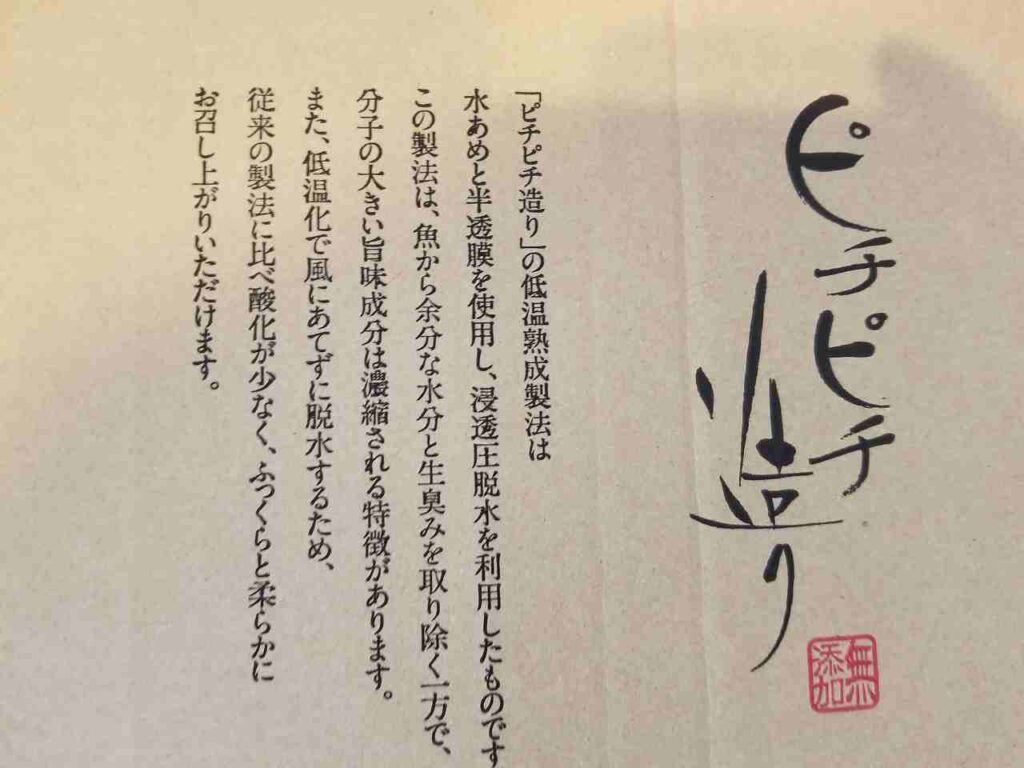 ピチピチ
造り
無
添加
「ピチピチ造り」の低温熟成製法は
水あめと半透膜を使用し、浸透圧脱水を利用したものです
この製法は、魚から余分な水分と生臭みを取り除く一方で、
分子の大きい旨味成分は濃縮される特徴があります。
また、低温化で風にあてずに脱水するため、
従来の製法に比べ酸化が少なく、ふっくらと柔らかに
お召し上がりいただけます。